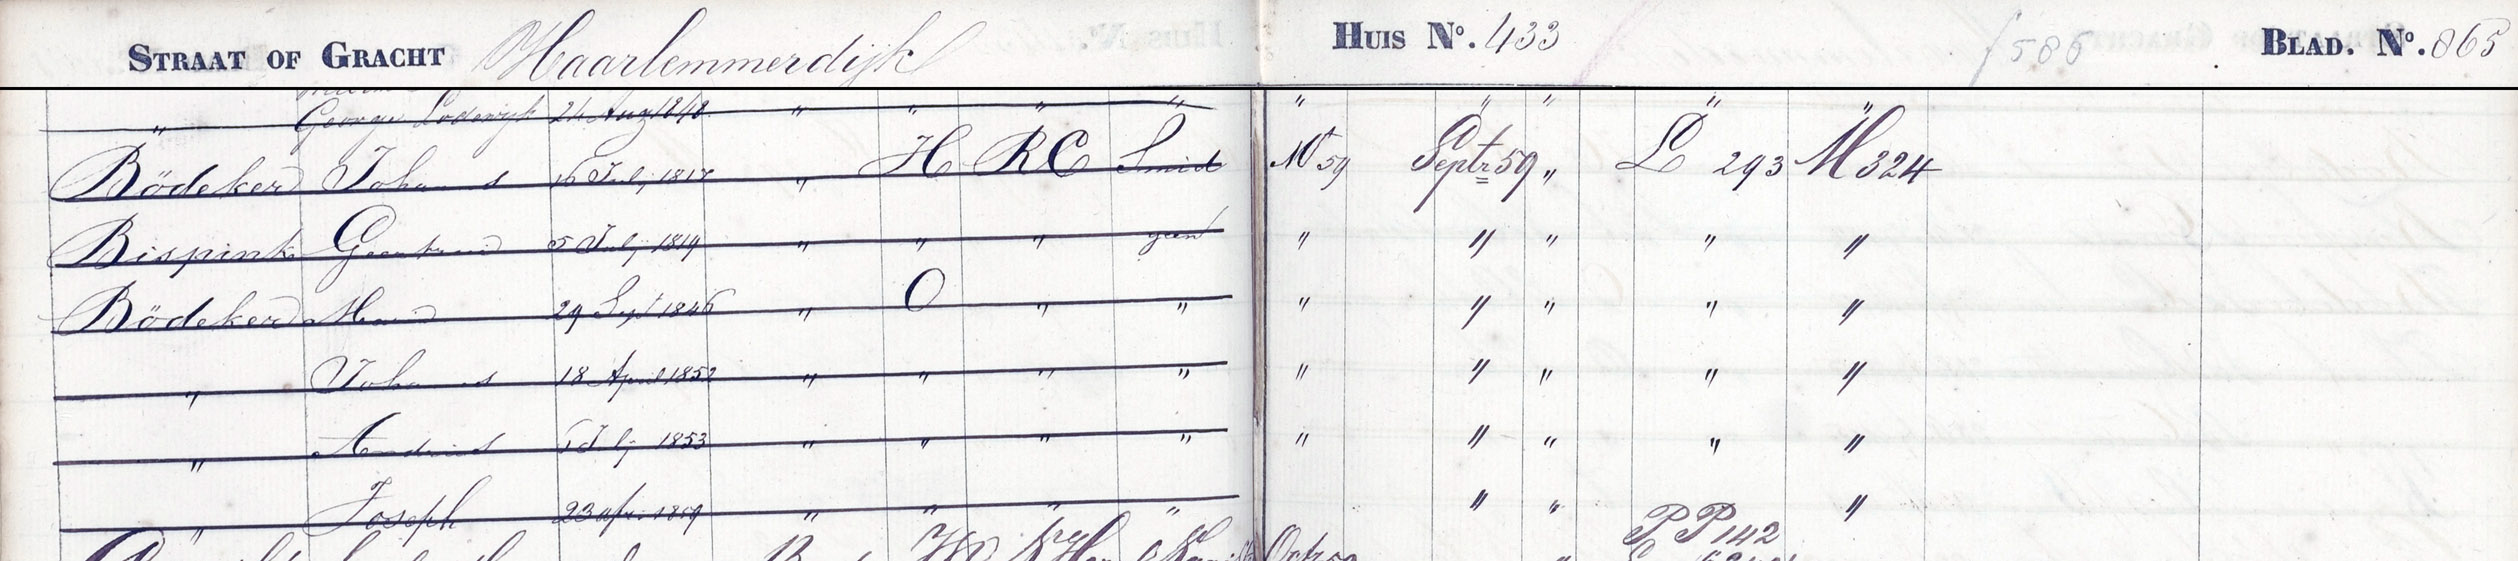 STRAAT OF GRACHT Haarlemmerdijk HUIS No. 433 586 BLAD. No. 865
" George Lodewijk 24 Aug 1848 " " " " " " " " "
Bödeker Johannes 16 July 1817 " H RC Smid M 59 Septr 59 " L 293 M 324
Bispink Geertruid 5 July 1819 " " " geen " " " " "
Bödeker Maria 29 Sept 1846 " O " " " " " " "
" Johannes 18 April 1852 " " " " " " " " "
" Andries 5 July 1853 " " " " " " " " "
" Joseph 23 apr. 1859 " " " " " " "
PP 142
Octr 59